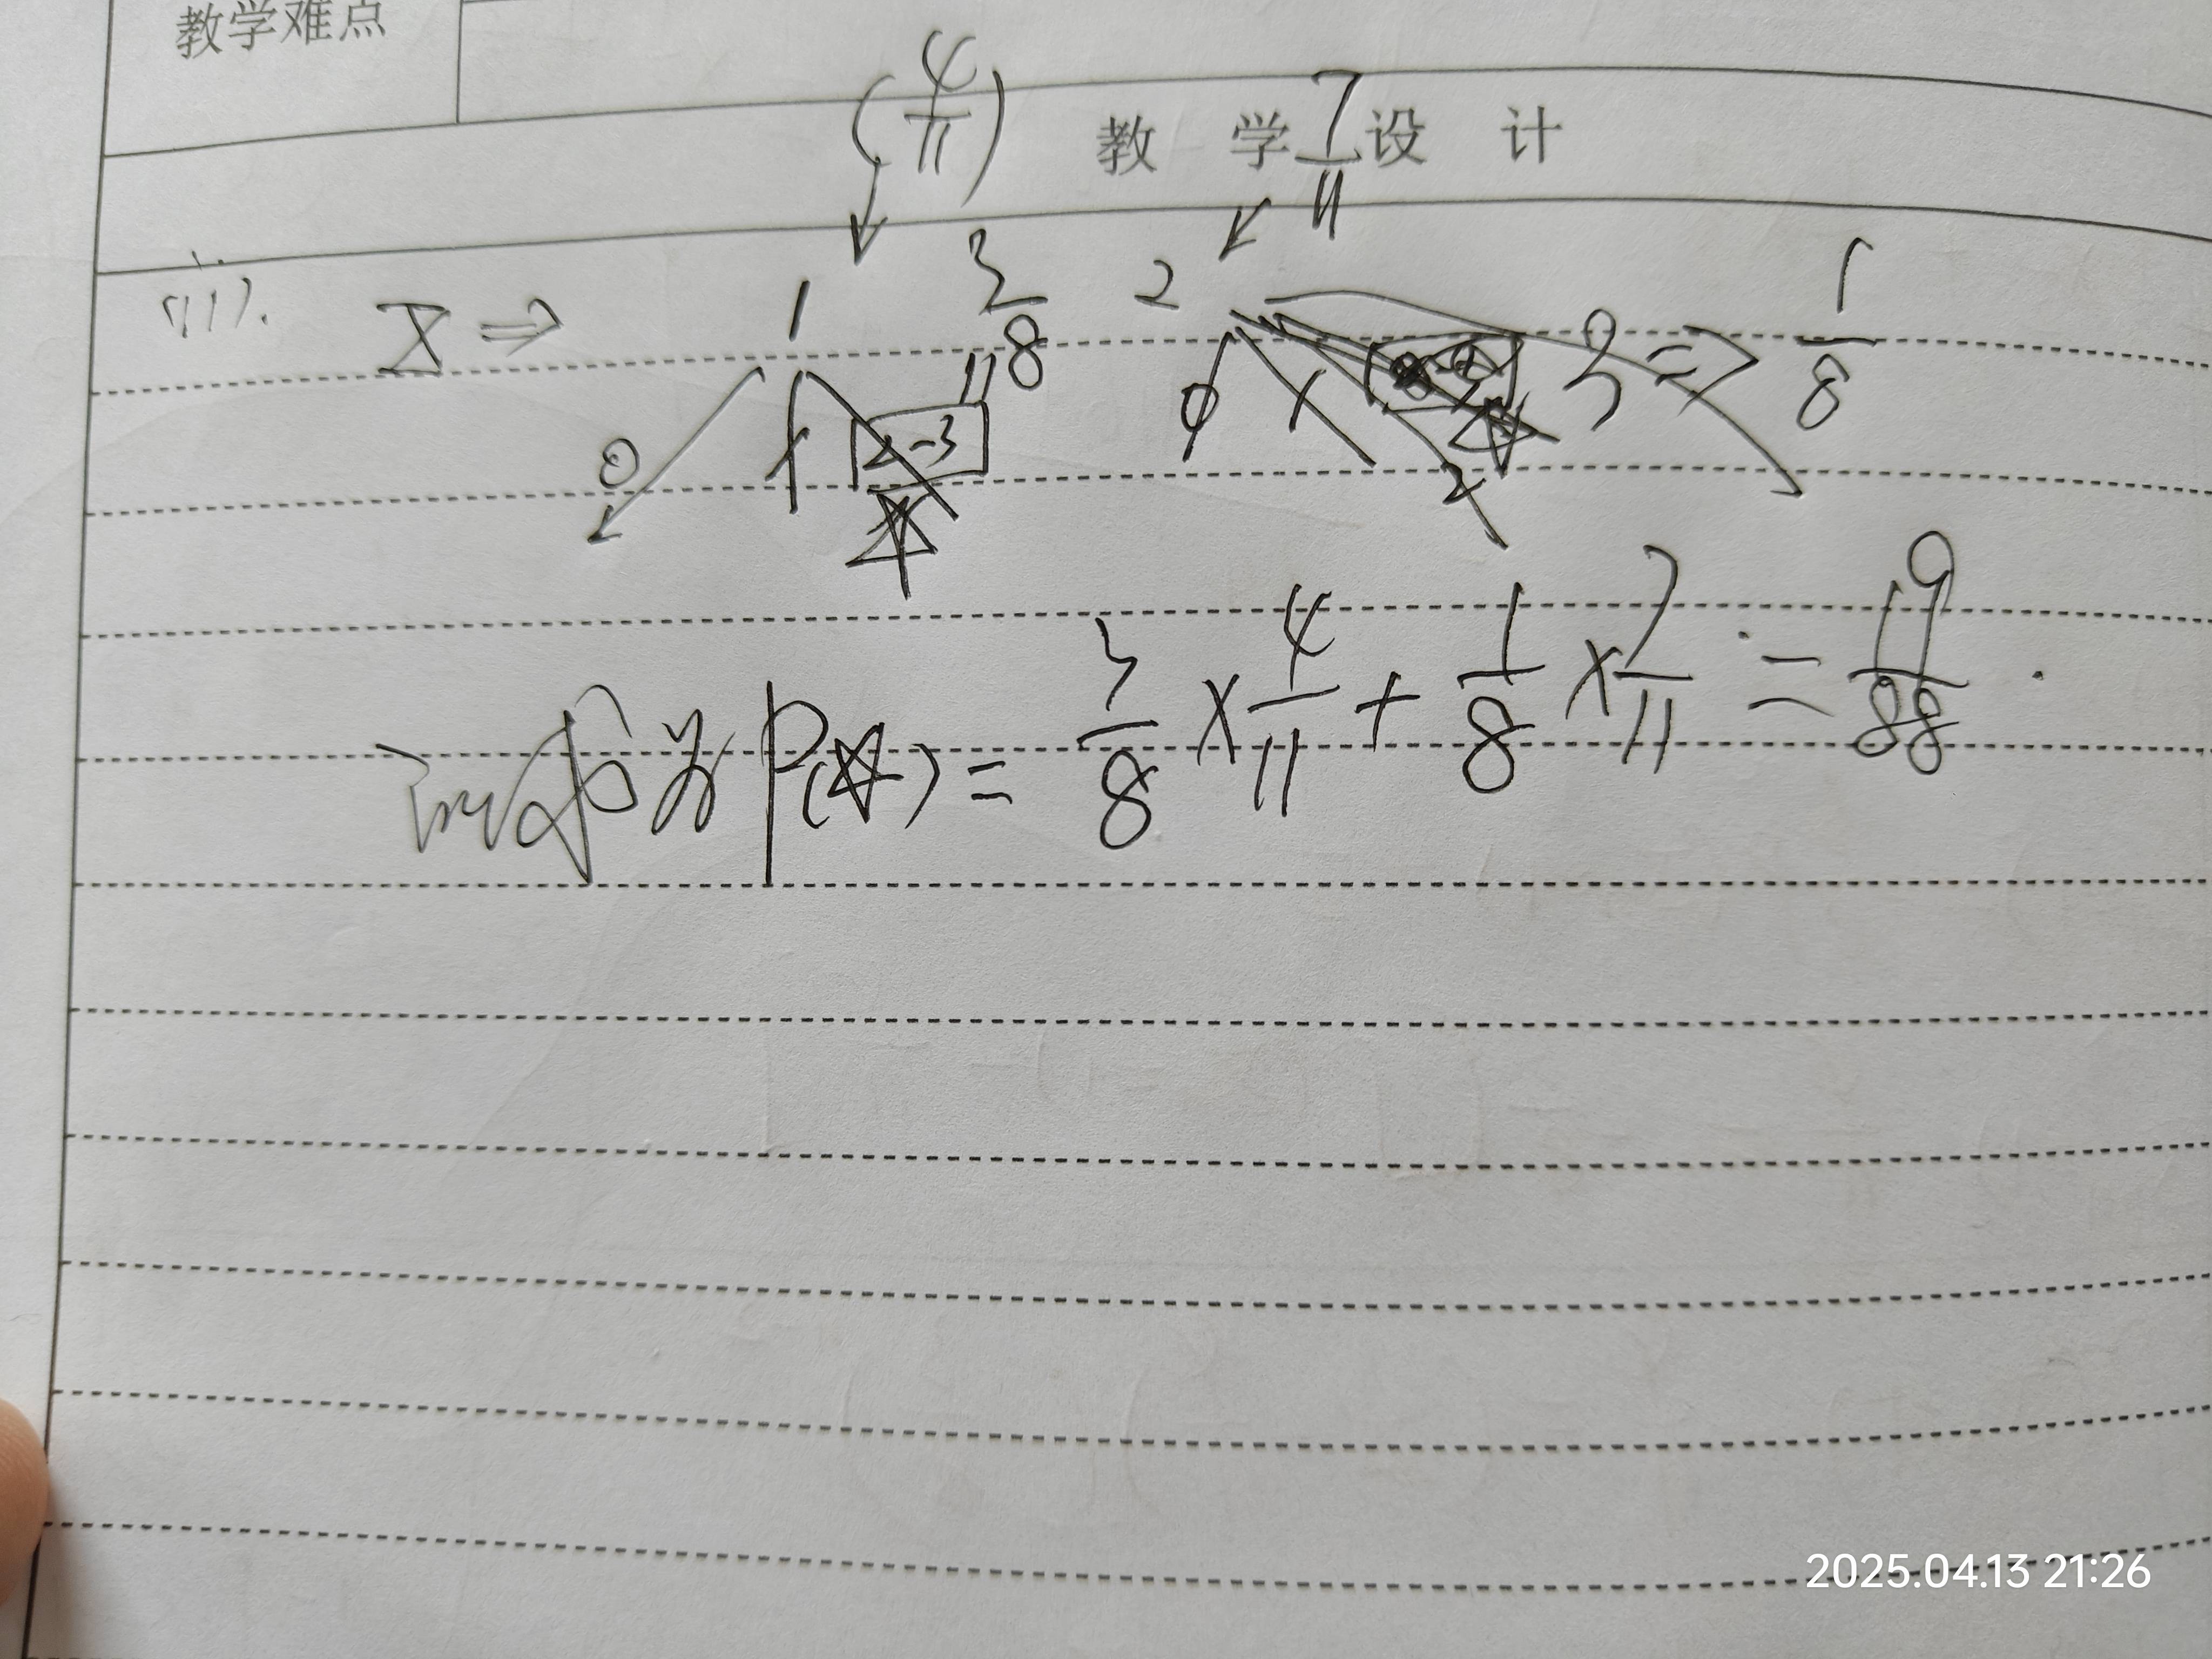 教学难点
(4/11)
教 学 设 计
7/11
(1).
X ⇒ 1 3/8 2 3 ⇒ 1/8
0 1 2-3 0 1 2
☆ ☆
所求为 P(☆) = 3/8 × 4/11 + 1/8 × 7/11 = 19/88 .
2025.04.13 21:26